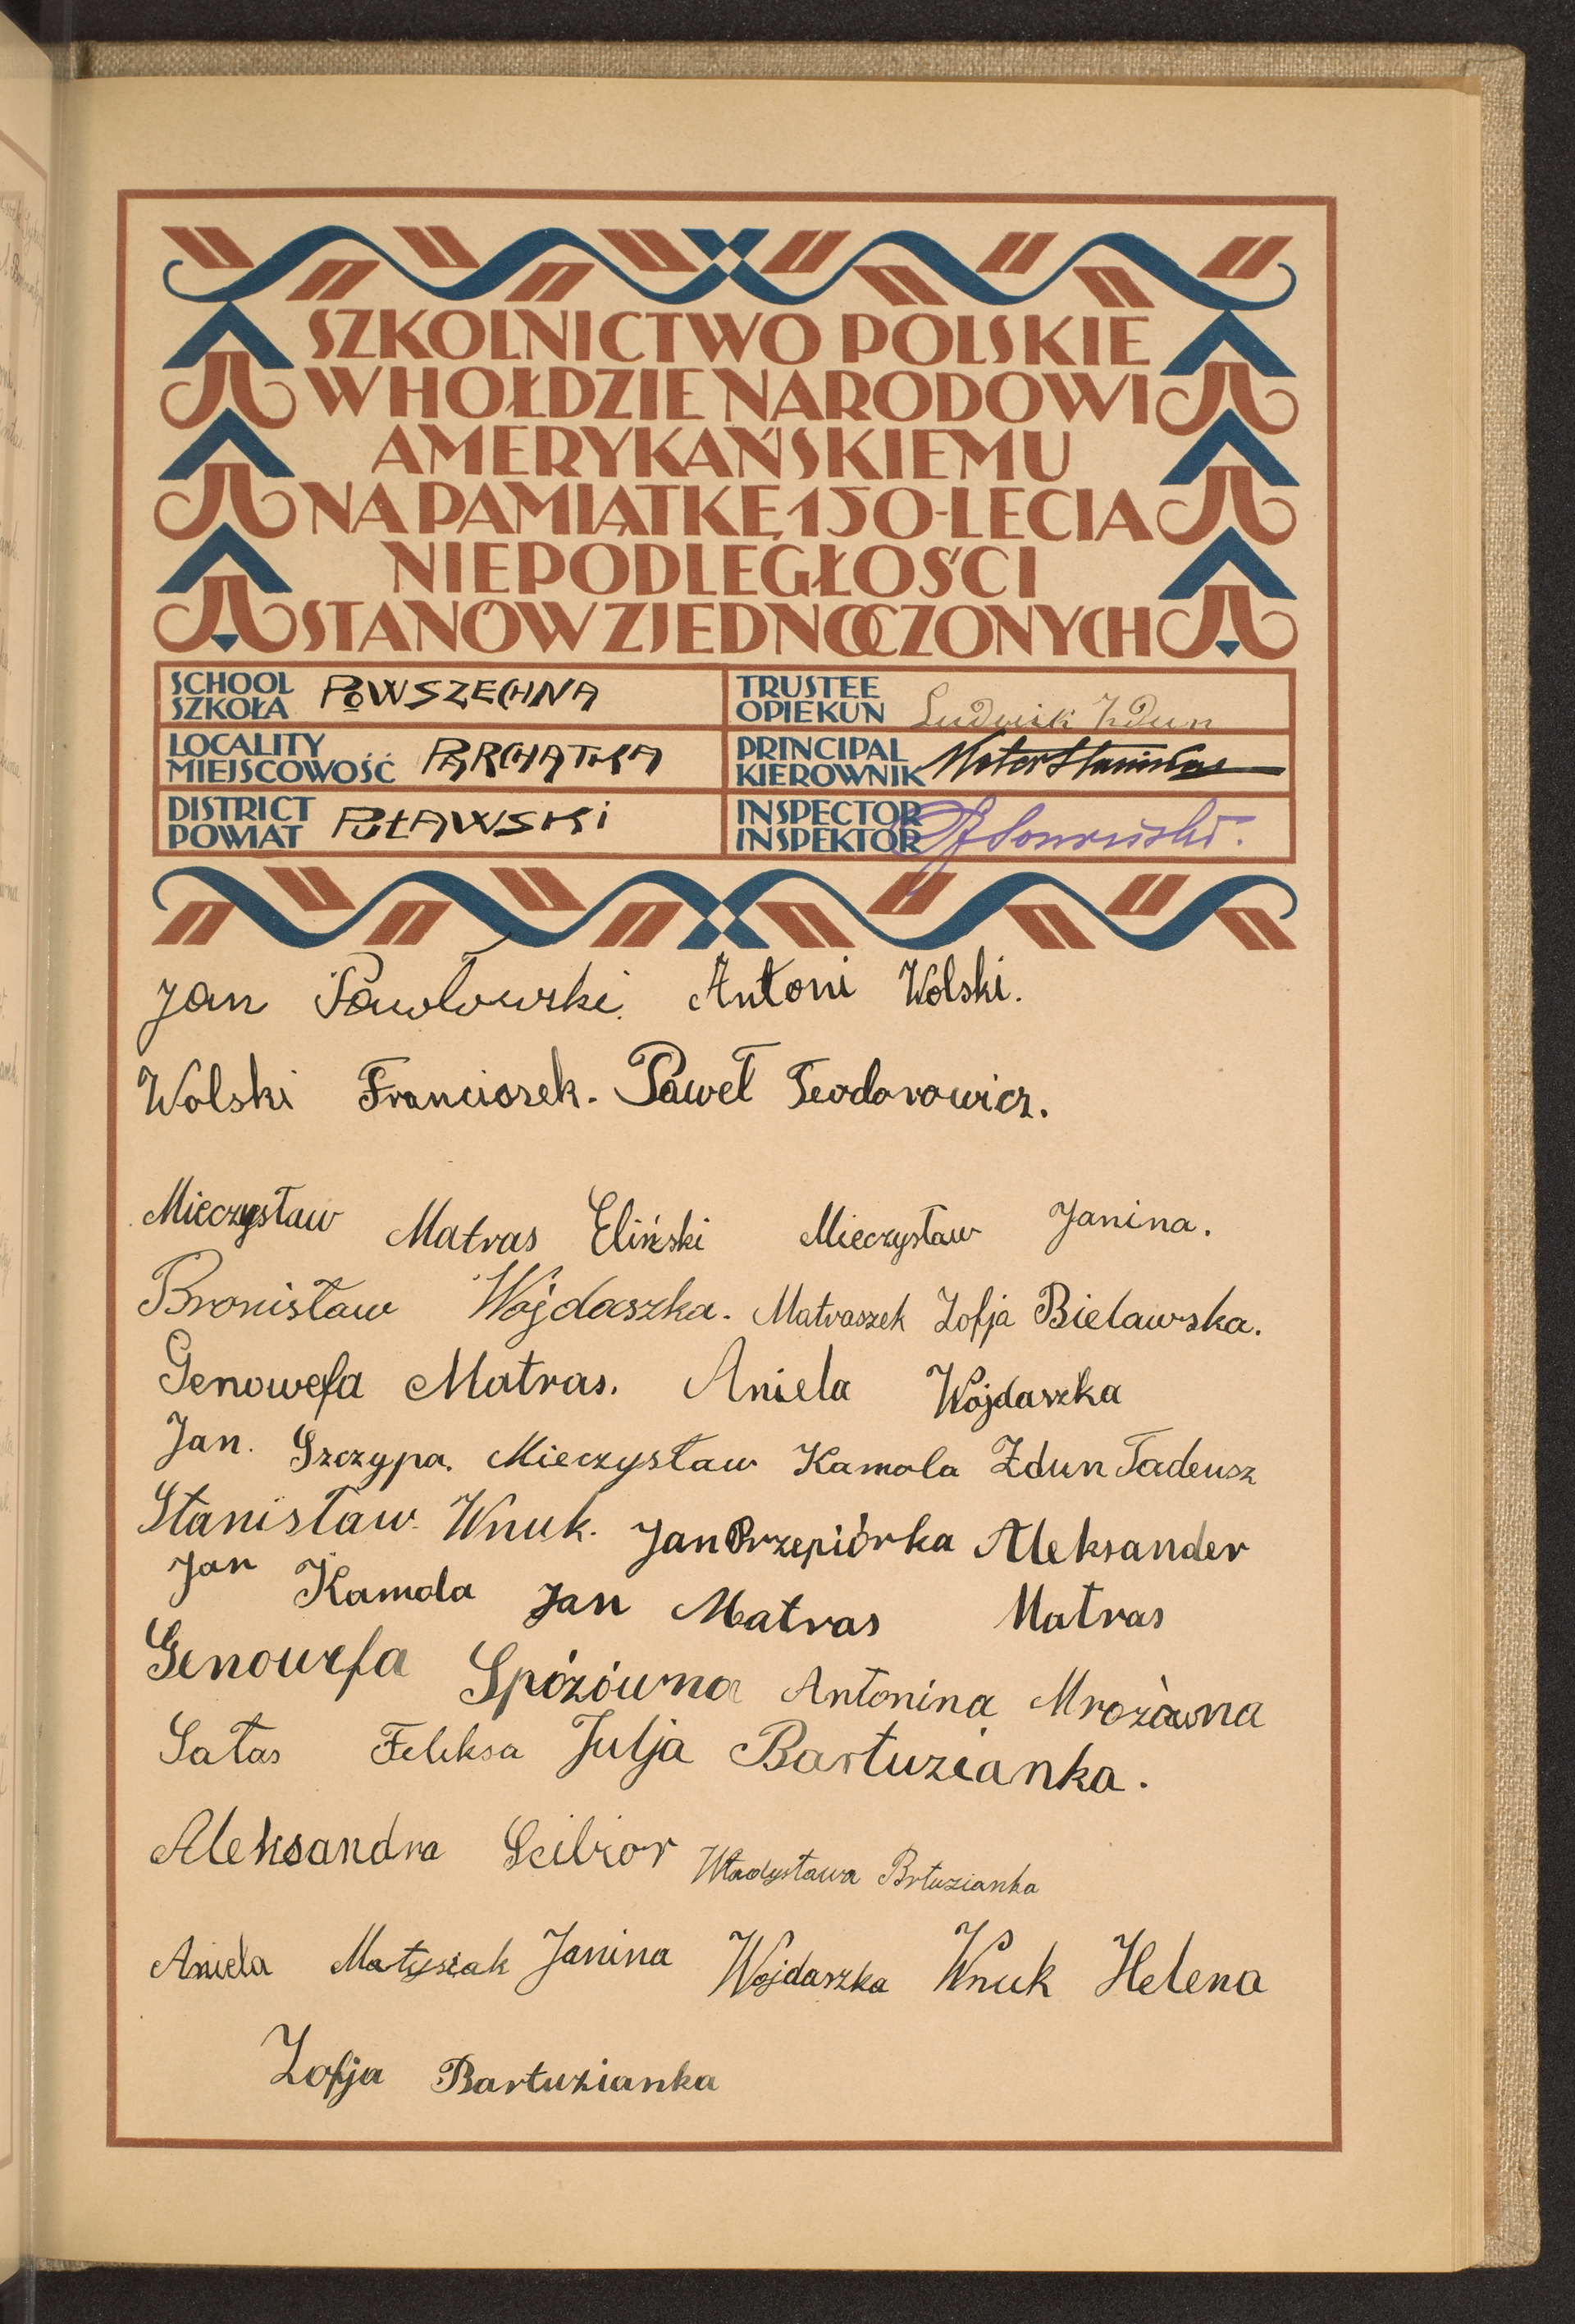 SZKOLNICTWO POLSKIE
W HOŁDZIE NARODOWI
AMERYKAŃSKIEMU
NA PAMIĄTKĘ 150-LECIA
NIEPODLEGŁOŚCI
STANÓW ZJEDNOCZONYCH
SCHOOL
SZKOŁA POWSZECHNA
TRUSTEE
OPIEKUN Ludwik Zdun
LOCALITY
MIEJSCOWOŚĆ PARCHATKA
PRINCIPAL
KIEROWNIK
DISTRICT
POWIAT PUŁAWSKI
INSPECTOR
INSPEKTOR
Jan Pawłowski. Antoni Wolski.
Wolski Franciszek. Paweł Teodorowicz.
Mieczysław Matras Eliński Mieczysław Janina.
Bronisław Wójdaszka. Matraszek Zofja Bielawska.
Genowefa Matras. Aniela Wójdaszka
Jan. Szczypa. Mieczysław Kamola Zdun Tadeusz
Stanisław Wnuk. Jan Przepiórka Aleksander
Jan Kamola Jan Matras Matras
Genowefa Spózówna Antonina Mrozówna
Sałas Feliksa Julja Bartuzianka.
Aleksandra Scibior Władysława Brtuzianka
Aniela Matysiak Janina Wojdaszka Wnuk Helena
Zofja Bartuzianka